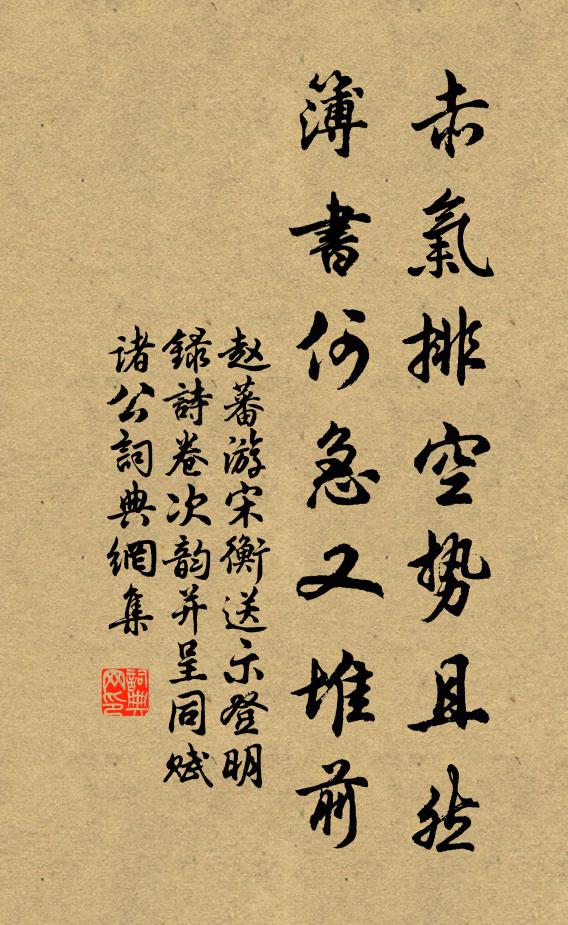 赤氣排空势且然
簿書何急又堆前
赵蕃游宋衡送示登明
録詩卷次韵并呈同赋
诸公詞典網集
詞典
网印